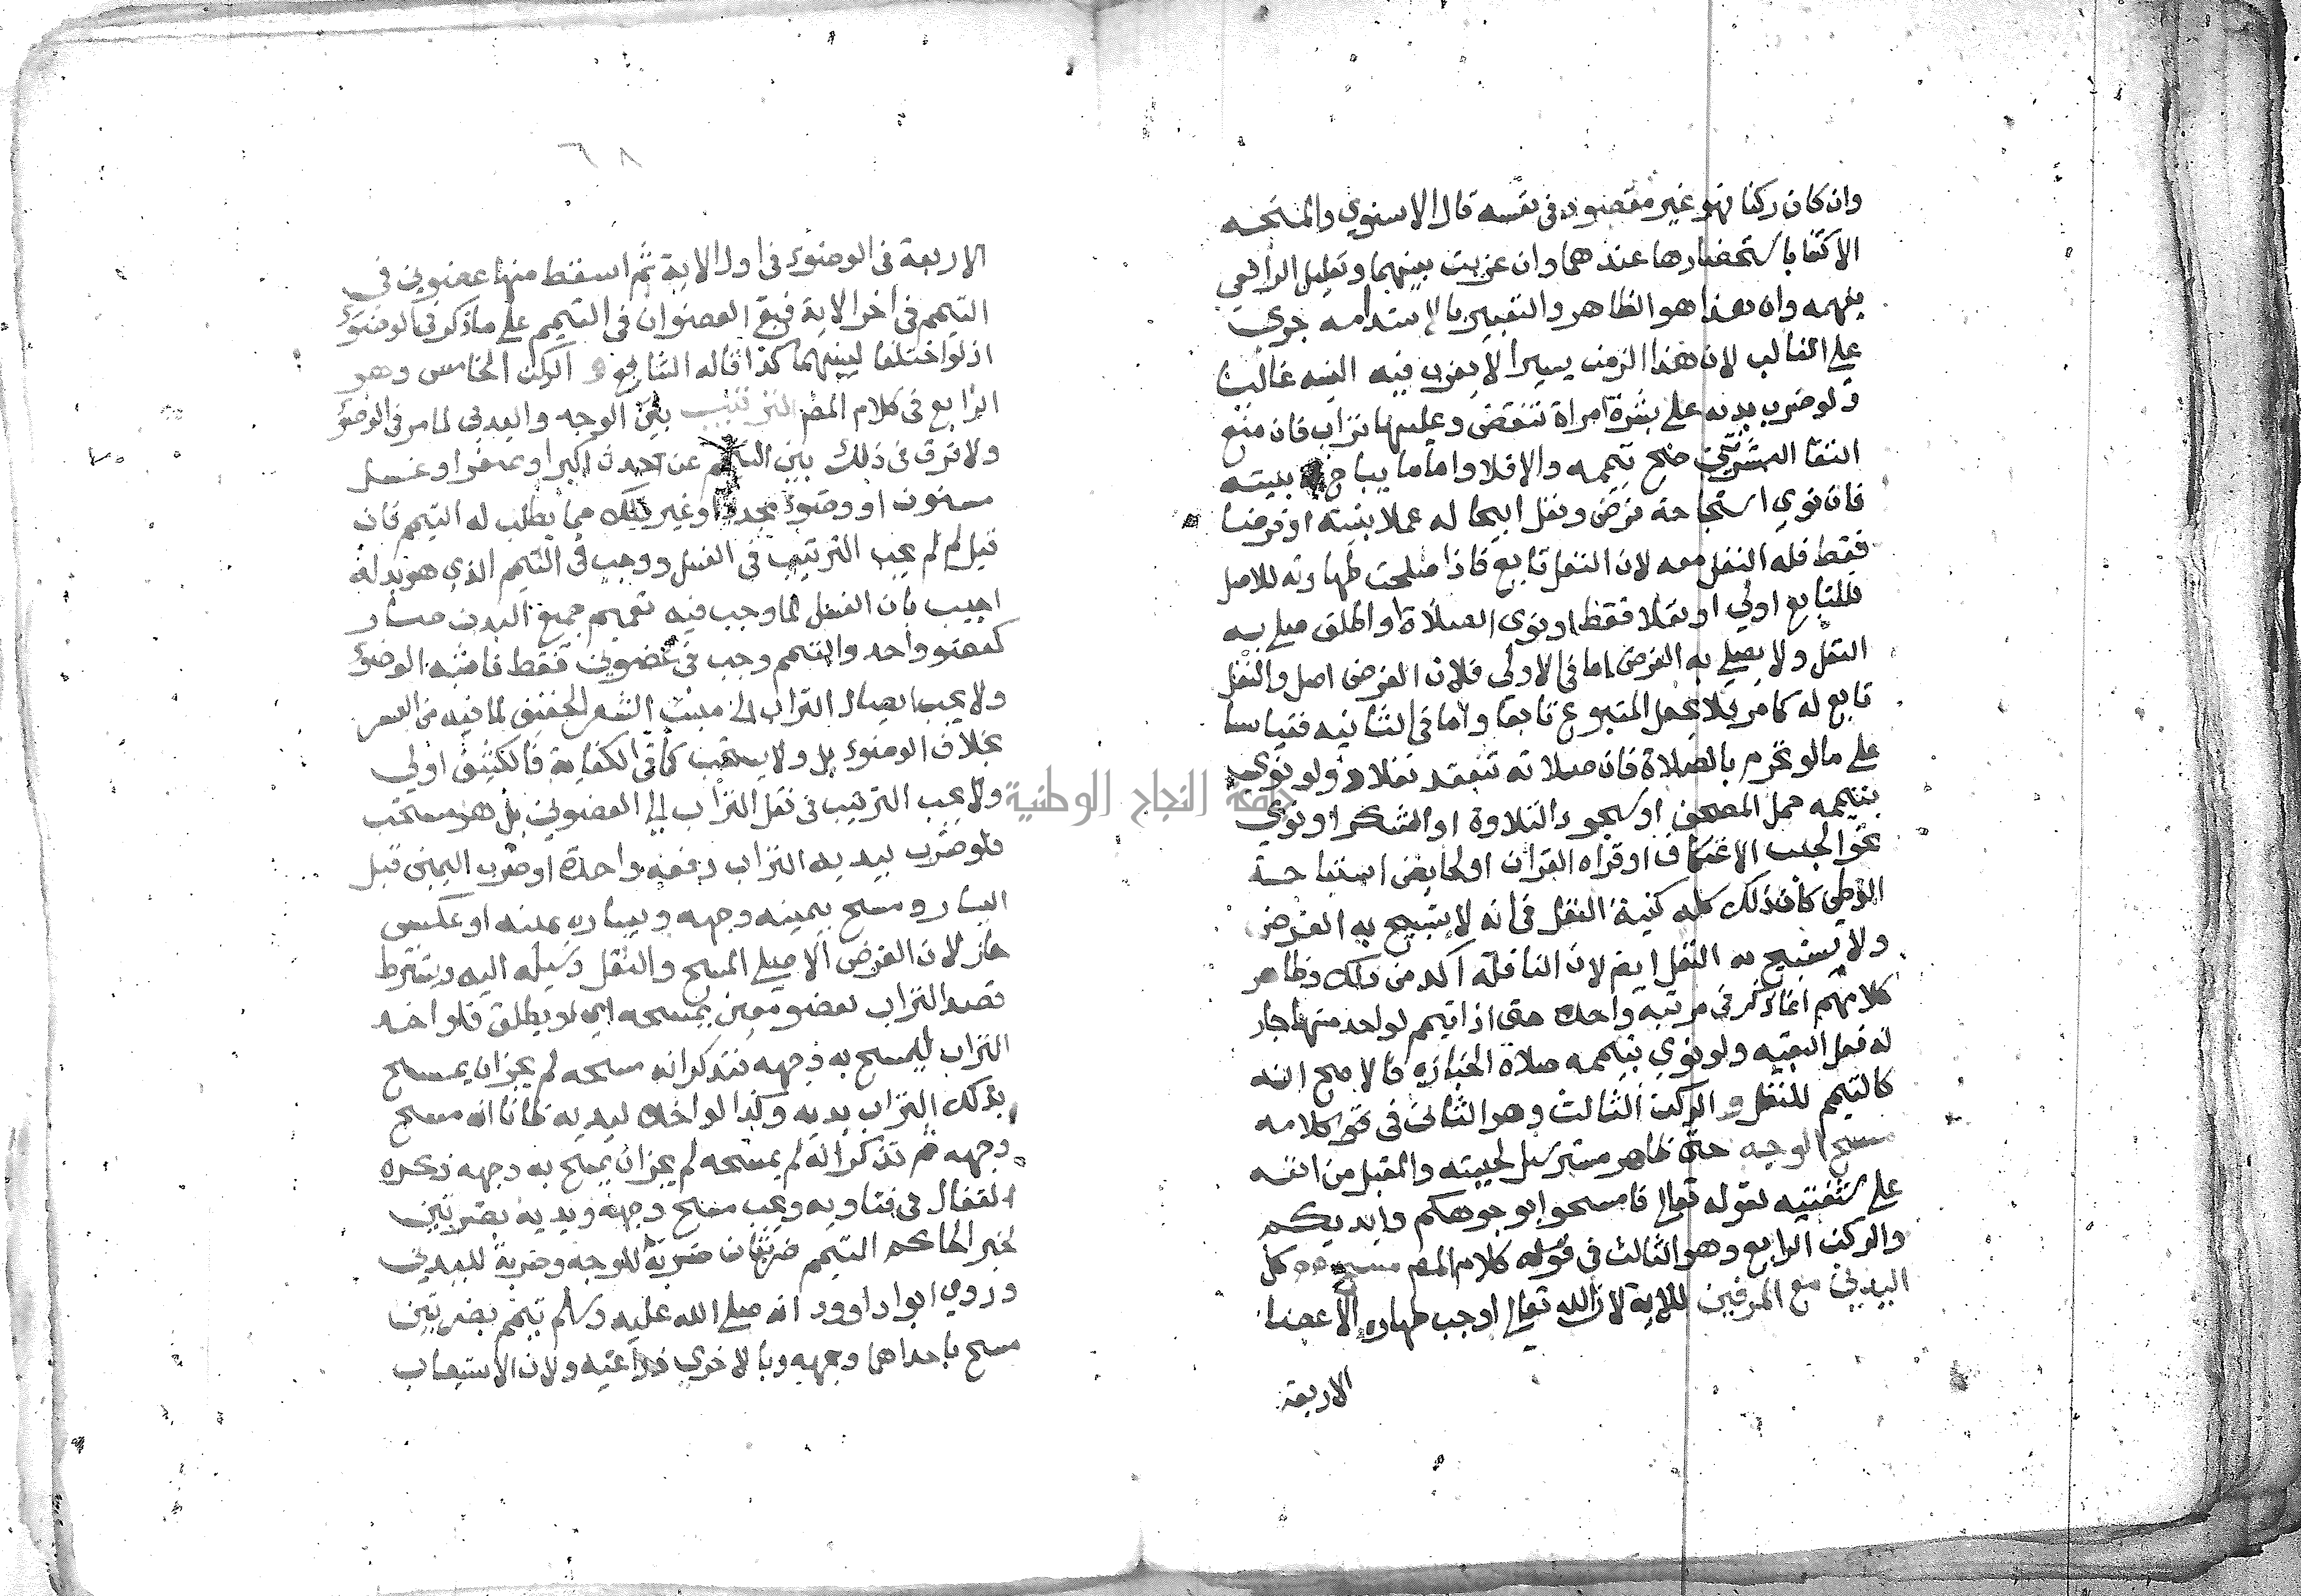 وان كان ركنا فهو غير مقصود في نفسه قال الاسنوي والمتجه
الاكتفا باستحضارها عندهما وان عزبت بينهما وتعليل الرافعي
يفهمه وان هذا هو الظاهر والتعبير بالاستدامه جري
علي الغالب لان هذا الزمن يسيرا لا يعزب فيه النيه غالبا
ولو ضرب يده علي بشرة امراة تنقض وعليها تراب فان منع
التقا البشرتين صح تيممه والا فلا واما ما يباح بنيته
فان نوي استباحة فرض ونفل ابيحا له عملا بنيته او فرضا
فقط فله النفل معه لان النفل تابع فاذا صلحت طهارته للاصل
فللتابع اولي او نفلا فقط او نوي الصلاة واطلق صلي به
النفل ولا يصلي به الفرض اما في الاولي فلان الفرض اصل والنفل
تابع له كما مر فلا يجعل المتبوع تابعا واما في الثانيه فقياسا
علي ما لو تحرم بالصلاة فان صلاته تنعقد نفلا ولو نوي
بتيممه حمل المصحف او سجود التلاوة او الشكر او نوي
نحو الجنب الاعتكاف او قراه القران او الحايض استباحة
الوطي كان ذلك كله كنية النفل في انه لا يستبيح به الفرض
ولا يستبيح به النفل ايضا لان النافلة آكد من ذلك وظاهر
كلامهم ان ما ذكر في مرتبه واحده حتي اذا تيمم لواحد منها جاز
له فعل البقيه ولو نوي بتيممه صلاة الجنازه فالاصح انه
كالتيمم للنفل و الركن الثالث وهو الثاني في كلامه
مسح الوجه حتي ظاهر مسترسل لحيته والمقبل من انفه
علي شفتيه لقوله تعالي فامسحوا بوجوهكم وايديكم
والركن الرابع وهو الثالث في كلام المص مسح كل
اليدين مع المرفقين للاية لان الله تعالي اوجب طهاره الاعضا
الاربعة
٦٨
الاربعة في الوضوء في اول الاية ثم اسقط منها عضوين في
التيمم في اخر الاية فبقي العضوان في التيمم علي ما ذكر في الوضوء
اذ لو اختلفا لبينهما كذا قاله الشافعي و الركن الخامس وهو
الرابع في كلام المص الترتيب بين الوجه واليدين لما مر في الوضوء
ولا فرق في ذلك بين التيمم عن حدث اكبر او اصغر او غسل
مسنون او وضوء مجدد او غير ذلك مما يطلب له التيمم فان
قيل لم لم يجب الترتيب في الغسل ووجب في التيمم الذي هو بدله
اجيب بان الغسل لما وجب فيه تعميم جميع البدن صار
كعضو واحد والتيمم وجب في عضوين فقط فاشبه الوضوء
ولا يجب ايصال التراب الي منبت الشعر الخفيف لما فيه من العسر
بخلاف الوضوء بل ولا يستحب كما في الكفاية فالكثيف اولي
ولا يجب الترتيب في نقل التراب الي العضوين بل هو مستحب
فلو ضرب بيديه التراب دفعه واحدة او ضرب اليمين قبل
اليسار ومسح بيمينه وجهه وبيساره يمينه او عكس
جاز لان الفرض الاصلي المسح والنقل وسيله اليه ويشترط
قصد التراب لعضو معين يمسحه او يطلق فلو اخذ
التراب ليمسح به وجهه فتذكر انه مسحه لم يجز ان يمسح
بذلك التراب يديه وكذا لو اخذه ليديه ظانا انه مسح
وجهه ثم تذكر انه لم يمسحه لم يجز ان يمسح به وجهه ذكره
القفال في فتاويه ويجب مسح وجهه ويديه بضربتين
لخبر الحاكم التيمم ضربتان ضربة للوجه وضربة لليدين
وروي ابو داوود انه صلي الله عليه وسلم تيمم بضربتين
مسح باحداهما وجهه وبالاخري ذراعيه ولان الاستيعاب
جامعة النجاح الوطنية